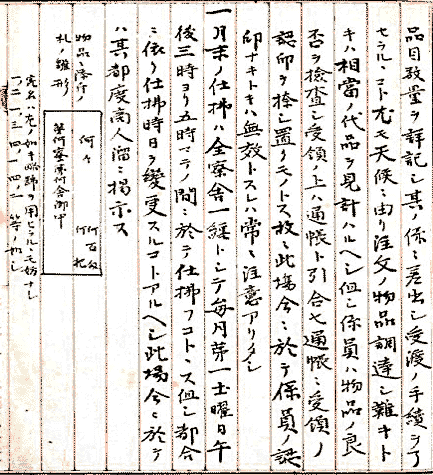 品目数量ヲ詳記シ其ノ係ニ差出シ受渡ノ手續ヲ了
セラルヽコト尤モ天候ニ由リ注文ノ物品調達シ難キト
キハ相當ノ代品ヲ見計ハルヘシ但シ係員ハ物品ノ良
否ヲ檢査シ受領ノ上ハ通帳ト引合セ通帳ニ受領ノ
認印ヲ捺シ置クモノトス故ニ此場合ニ於テ係員ノ認
印ナキトキハ無效トスレハ常ニ注意アリタシ
一月末ノ仕拂ハ全寮舎一纏トシテ毎月第一土曜日午
後三時ヨリ五時マテノ間ニ於テ仕拂フコトヽス但シ都合
ニ依リ仕拂時日ヲ變更スルコトアルヘシ此場合ニ於テ
ハ其都度商人溜ニ揭示ス
物品ニ添付ノ
札ノ雛形
何々 何百匁
何札
第何寮第何舎御中
宛名ハ左ノ如キ略號ヲ用ヒラルヽモ妨ナシ
一ノ二、一ノ三、四ノ一、四ノ二 等ノ如シ